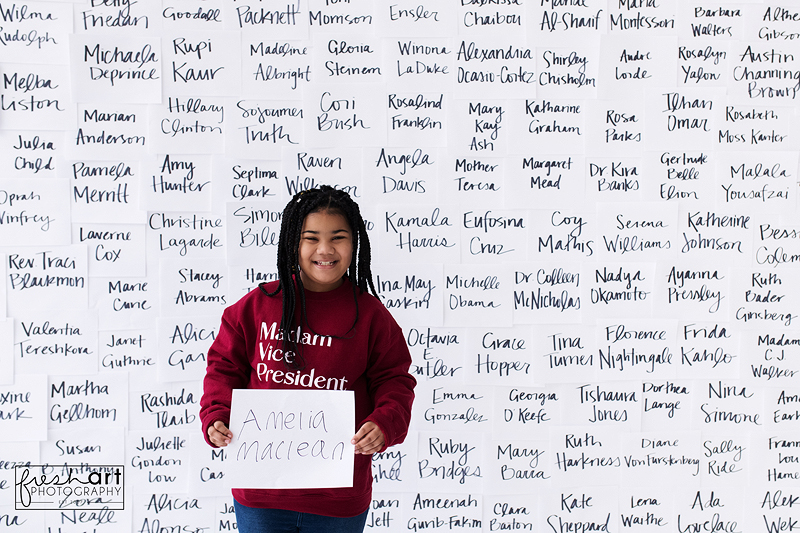 Wilma
Rudolph
Friedan
Goodall
Packnett
Morrison
Ensler
Chaibou
Al-Sharif
Montessori
Barbara
Walters
Gibson
Michaela
Deprince
Rupi
Kaur
Madeline
Albright
Gloria
Steinem
Winona
LaDuke
Alexandria
Ocasio-Cortez
Shirley
Chisholm
Andre
Lorde
Rosalyn
Yalow
Austin
Channing
Brown
Melba
Liston
Marian
Anderson
Hillary
Clinton
Sojourner
Truth
Cori
Bush
Rosalind
Franklin
Mary
Kay
Ash
Katharine
Graham
Rosa
Parks
Ilhan
Omar
Rosabeth
Moss Kanter
Julia
Child
Pamela
Merritt
Amy
Hunter
Septima
Clark
Raven
Angela
Davis
Mother
Teresa
Margaret
Mead
Dr Kira
Banks
Gertrude
Belle
Elion
Malala
Yousafzai
Oprah
Winfrey
Laverne
Cox
Christine
Lagarde
Kamala
Harris
Eufosina
Cruz
Coy
Mathis
Serena
Williams
Katherine
Johnson
Rev. Traci
Blackmon
Marie
Curie
Stacey
Abrams
Ina May
Gaskin
Michelle
Obama
Dr Colleen
McNicholas
Nadya
Okamoto
Ayanna
Pressley
Ruth
Bader
Ginsberg
Valentia
Tereshkora
Janet
Guthrie
Alicia
Octavia
E
Butler
Grace
Hopper
Tina
Turner
Florence
Nightingale
Frida
Kahlo
Madam
C.J.
Walker
Madam
Vice
President
Amelia
Maclean
Martha
Gellhorn
Rashida
Tlaib
Emma
Gonzalez
Georgia
O'Keefe
Tishaura
Jones
Dorthea
Lange
Nina
Simone
Susan
B Anthony
Juliette
Gordon
Low
Ruby
Bridges
Mary
Barra
Ruth
Harkness
Diane
Von Furstenberg
Sally
Ride
fresh art
PHOTOGRAPHY
Neale
Alicia
Alonso
Joan
Jett
Ameenah
Gurib-Fakim
Clara
Barton
Kate
Sheppard
Lena
Waithe
Ada
Lovelace